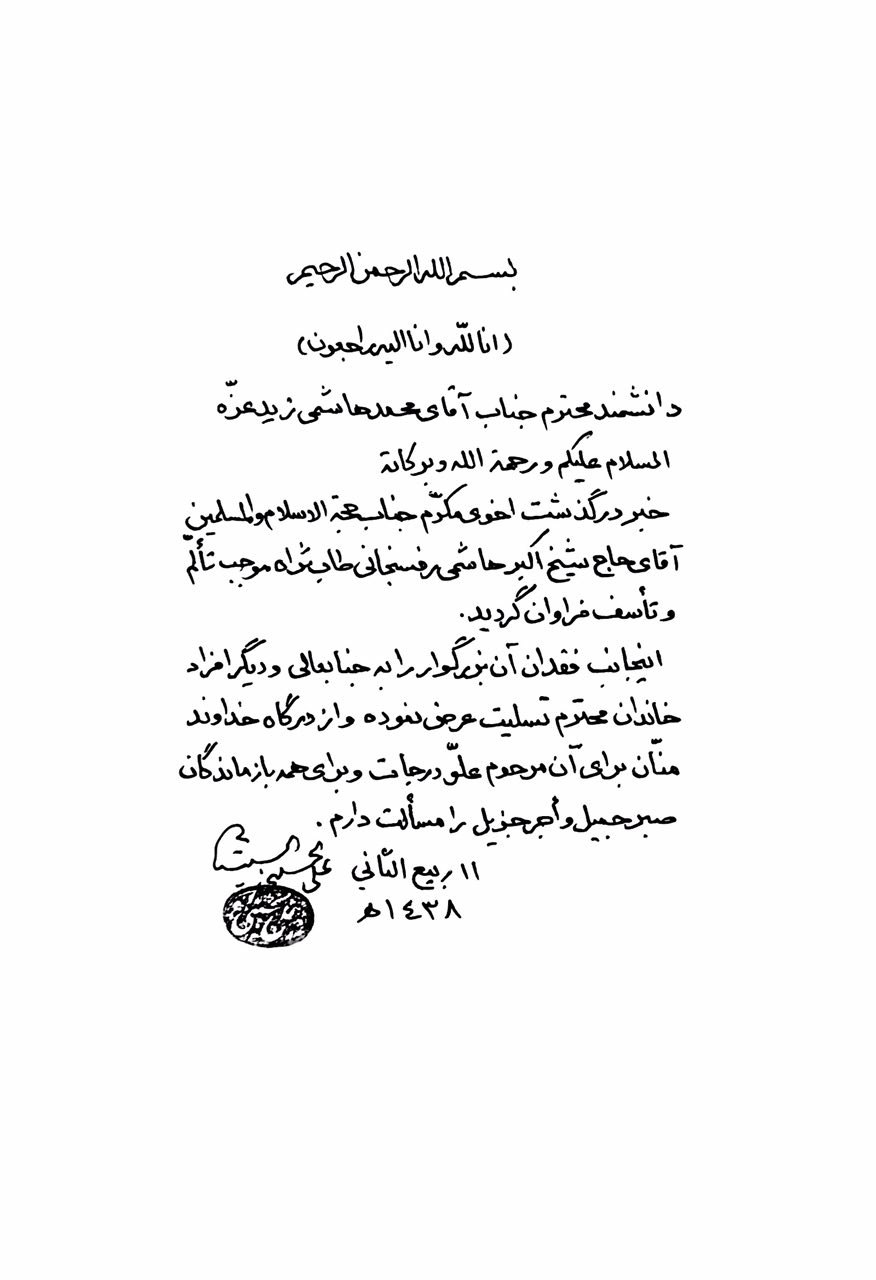 بسم الله الرحمن الرحیم
(انا للّه و انا الیه راجعون)
دانشمند محترم جناب آقای محمد هاشمی زید عزّه
السلام علیکم و رحمة الله وبرکاتة
خبر درگذشت اخوی مکرّم جناب حجة الاسلام والمسلمین
آقای حاج شیخ اکبر هاشمی رفسنجانی طاب ثراه موجب تألّم
و تأسف فراوان گردید.
اینجانب فقدان آن بزرگوار را به جنابعالی و دیگر افراد
خاندان محترم تسلیت عرض نموده و از درگاه خداوند
منّان برای آن مرحوم علوّ درجات و برای همه بازماندگان
صبر جمیل و أجر جزیل را مسألت دارم.
١١ ربیع الثّاني علي الحسیني السیستاني
١٤٣٨ هـ